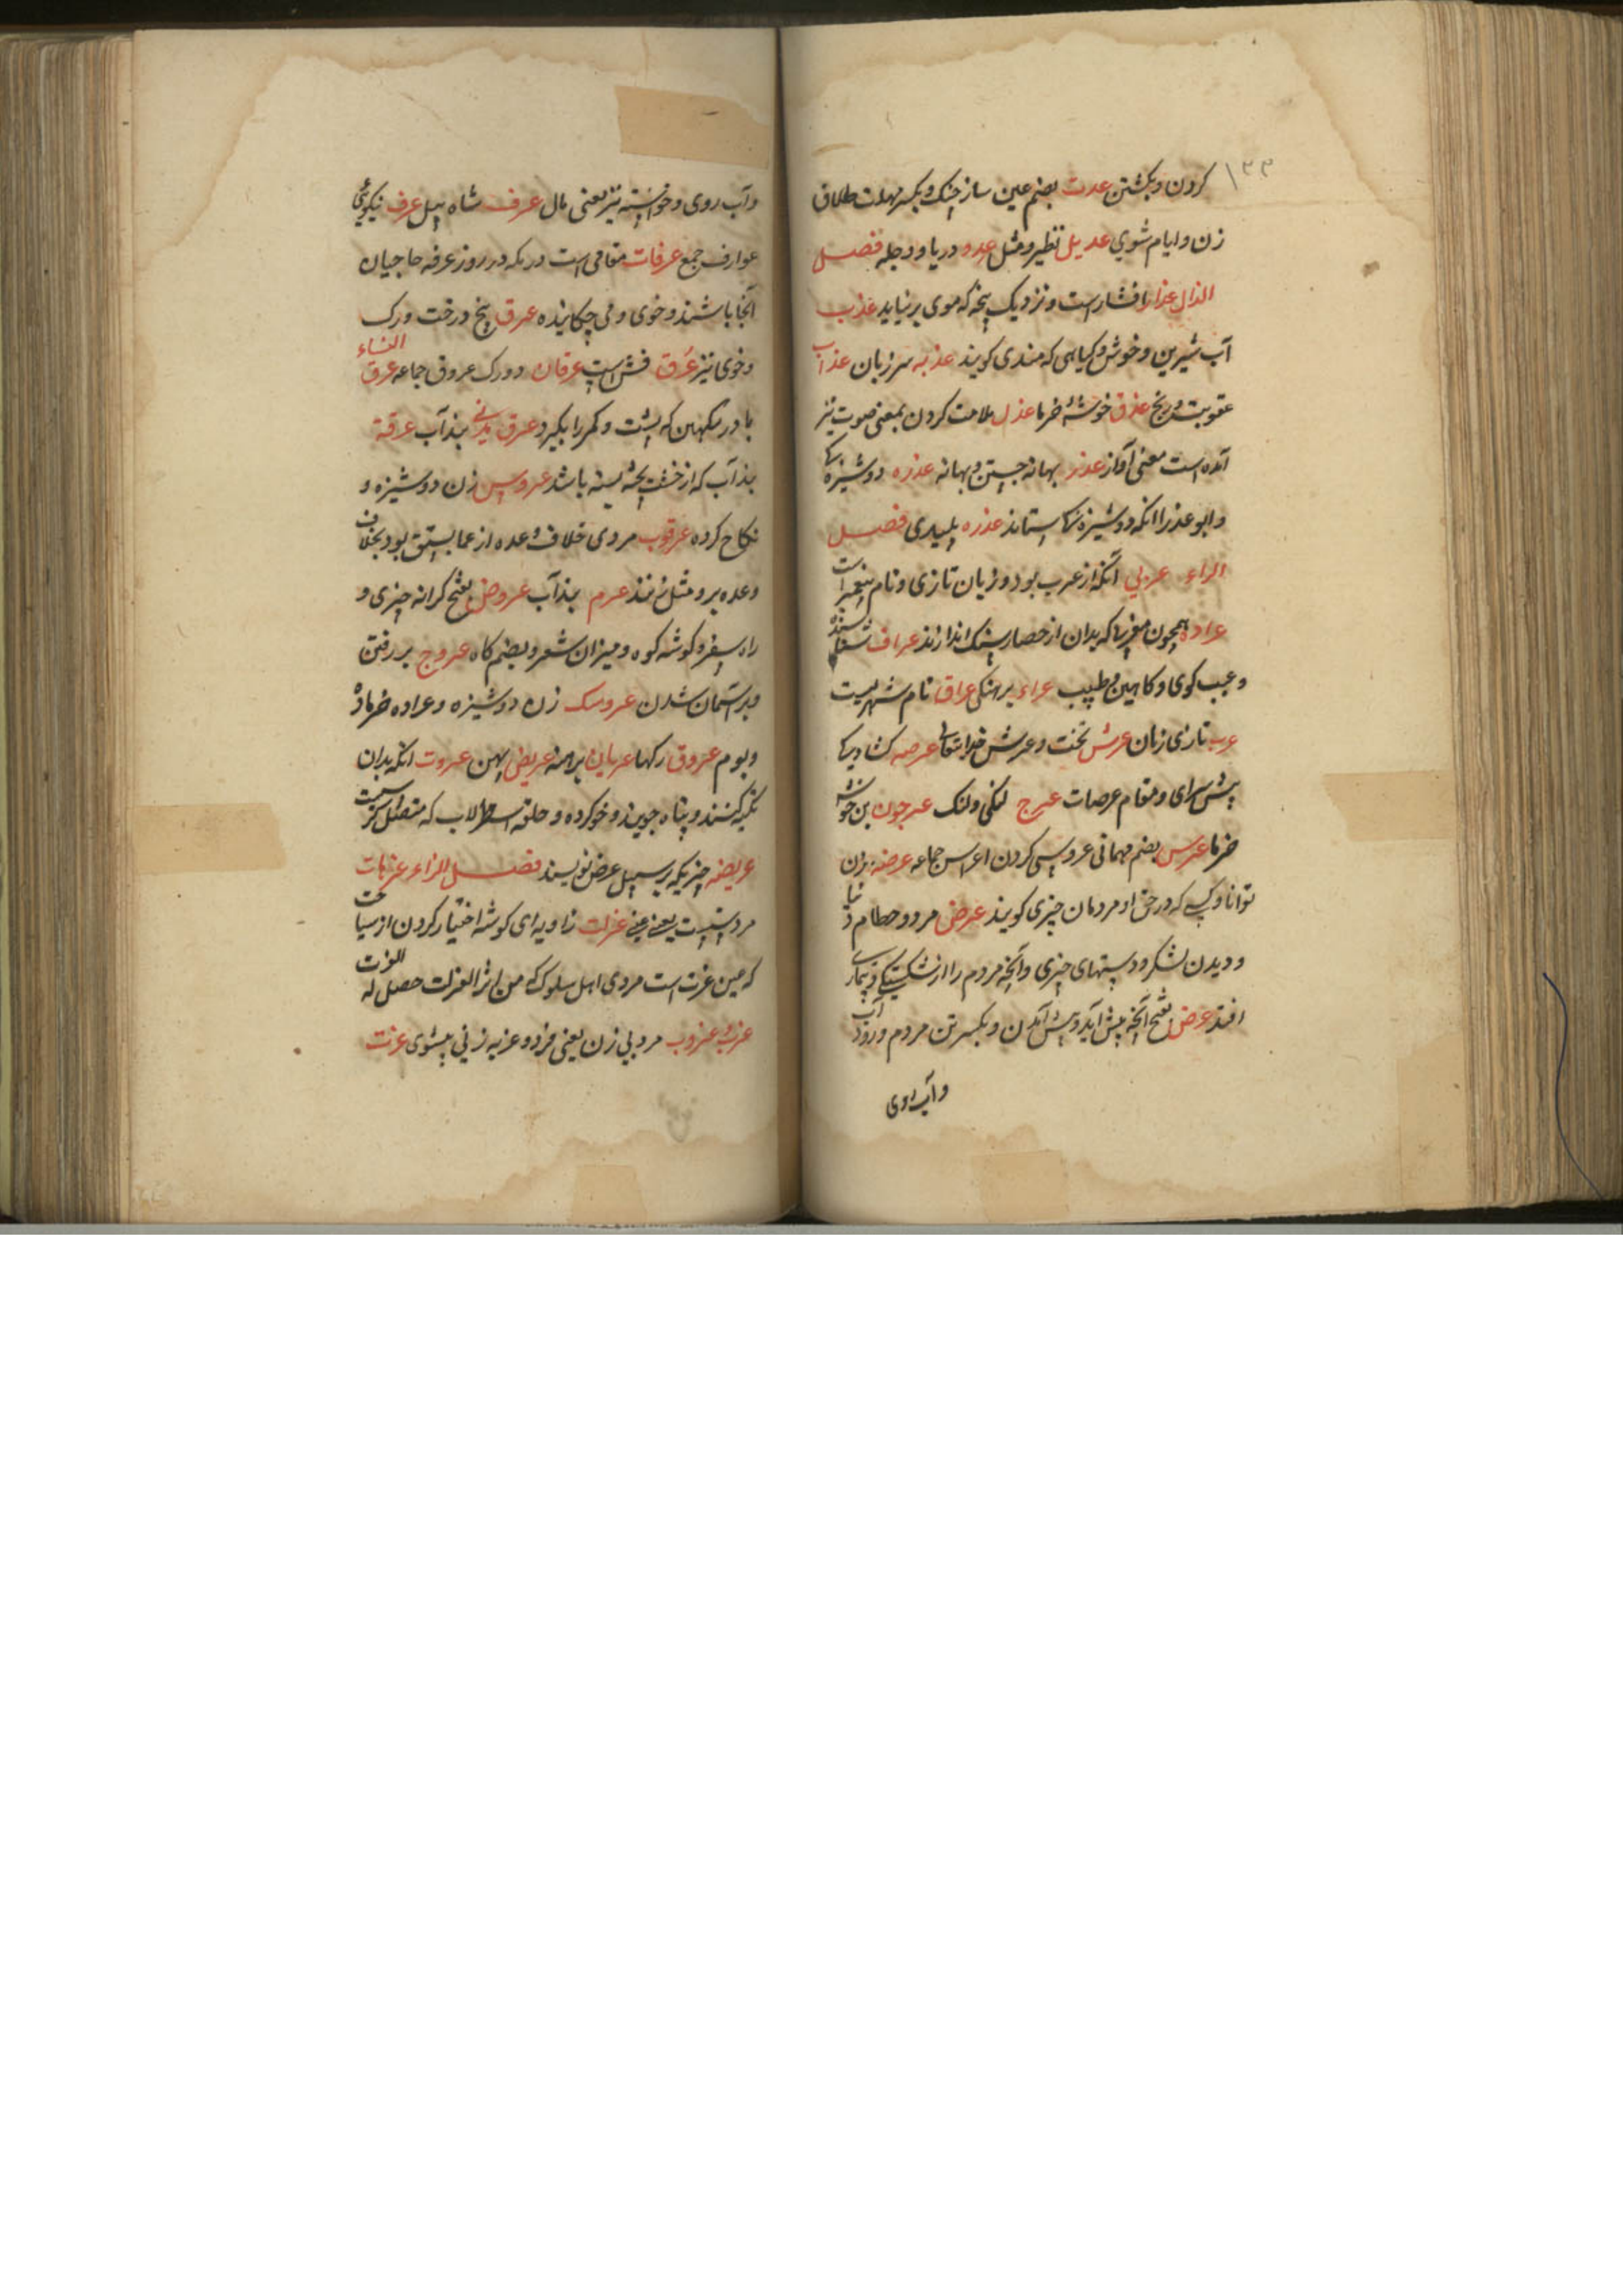 ۱۳۳
کردن و بکشتن عدت بضم عین ساز جنک و بکسر مهلت طلاق
زن و ایام شوی عدیل نظیر و مثل عدو دریا و دجله فصل
الذال عذار افشار است و نزدیک که موی برنیاید عذب
آب شیرین و خوش و کیاهی که هندی کویند عذبه سر زبان عذاب
عقوبت و رنج عذق خوشهٔ خرما عذل ملامت کردن بمعنی صوت نیز
آمده است معنی آواز عذر بهانه جستن و بهانه عذره دوشیزه کی
و ابو عذر انکه دوشیزه کی ستاند عذره پلیدی فصل
الراء عربی آنکه از عرب بود و زبان تازی و نام پیغمبر است
عراده همچون که بدان از حصار سنک اندازند عراف
و عیب کوی و کاهن و طبیب عراء برهنکی عراق نام شهریست
عرب تازی زبان عرش تخت و عرش خدایتعالی عرصه کشادیکی
پیش سرای و مقام عرصات عرج لنکی و لنک عرجون بن خوشه
خرما عرس بضم مهمانی عروسی کردن اعراس جماعه عرضه بزن
توانا و کسی که در حق او مردمان چیزی کویند عرض مرد و حطام دنیا
و دیدن لشکر و چیزی و آنچه مردم را از شکستکی و بیماری
افتد عرض بفتح آنچه پیش آید و پیش آمدن و بکسر تن مردم و رود آب
و آب روی
و آب روی و خواسته نیز یعنی مال عرف شاه پیل عرف نیکویی
عوارف جمع عرفات مقامی است در مکه در روز عرفه حاجیان
آنجا باشند و خوی و می چکانیده عرق بیخ درخت و رک
و خوی نیز عرق است عرقان دو رک عروق جماعه عرق النساء
باد که پشت و کمر را بکیرد عرق بند آب عرقة
بند آب که از خشت پخته بسته باشد عروس زن دوشیزه و
نکاح کرده عرقوب مردی خلاف وعده از بود بخلاف
وعده برو مثل زنند عرم بند آب عروض بفتح کرانه چیزی و
راه سفر و کوشه کوه و میزان شعر و بضم کاه عروج بر رفتن
و بر آسمان شدن عروسک زن دوشیزه و عراده خرماده
و بوم عروق رکها عریان برهنه عریض پهن عروت انکه بدان
تکیه کنند و پناه جویند و خو کرده و حلقه اسطرلاب که متصل
عریضه چیزیکه بر سبیل عرض نویسند فصل الزاء عزهات
مرد یعنی عزلت زاویه ای کوشه اختیار کردن از سیاحت
که عین عزت است مردی اهل سلوک که من اثر العزلت حصل له العزت
عزب و عزوب مرد بی زن یعنی فرد و عزبه زنی بیشوی عزت